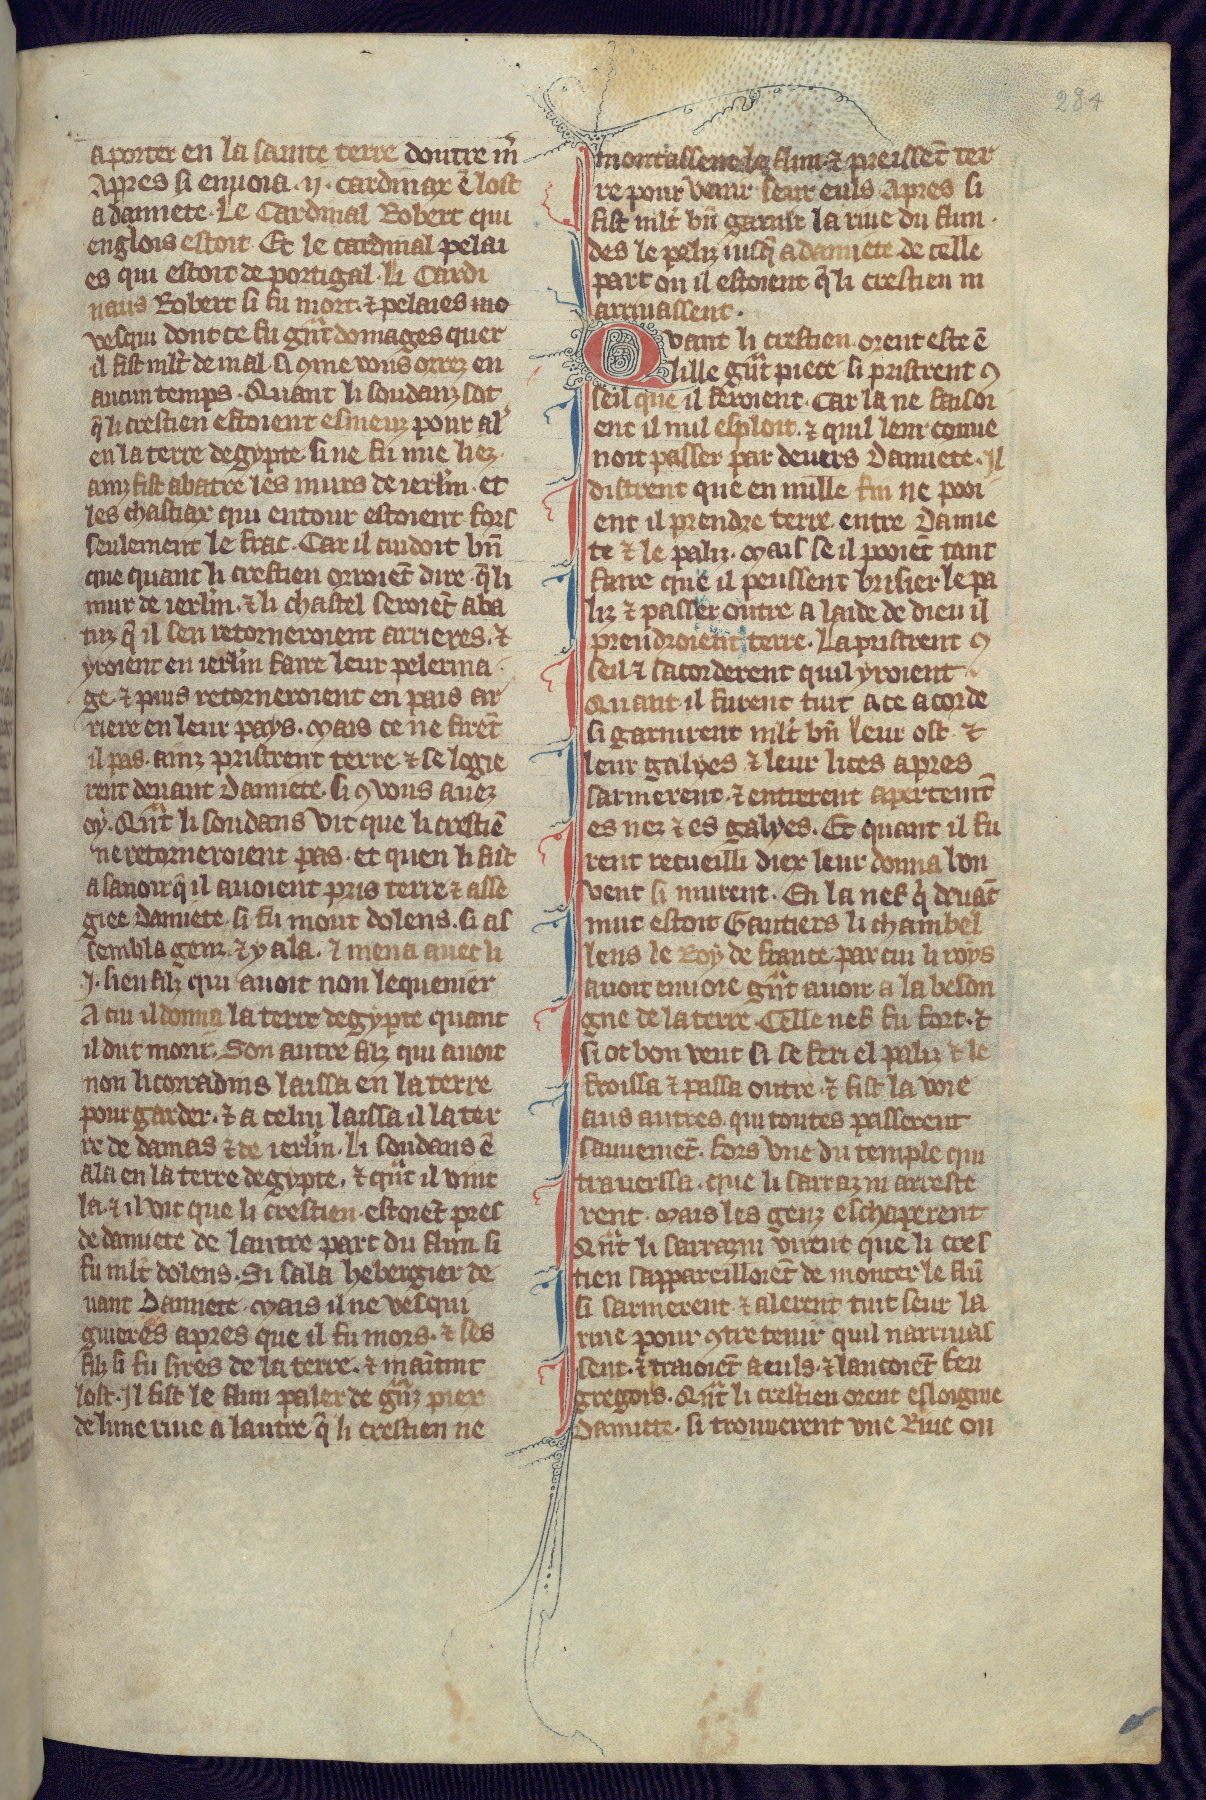 284
aporter en la sainte terre doutre mr̄
Apres si enuoia .ij. cardinax ē lost
a damiete. Le Cardinal Robert qui
englois estoit. Et le cardinal pelai
es qui estoit de portigal. Li Cardi
naus Robert si fu mort. ⁊ pelaies uio
vesqui dont ce fu gr̄nt domages quer
il fist ml̄t de mal. si ꝯme vous orrez en
aucun temps. Quant li soudanz sot
q̄ li crestien estoient esmeuz pour al'
en la terre degypte. si ne fu mie liez.
ainz fist abatre les murs de ierl̄m. et
les chastiax qui entour estoient fors
seulement le krac. Car il cuidoit bn̄
que quant li crestien orroiēt dire q̄ li
mur de ierl̄m. ⁊ li chastel seroiēt aba
tuz q̄ il sen retorneroient arrieres. ⁊
yroient en ierl̄m faire leur pelerina
ge. ⁊ puis retorneroient en pais ar
riere en leur pays. Mais ce ne firēt
il pas. ainz pristrent terre ⁊ se logie
rent deuant Damiete. si ꝯ vous auez
oy. Qūnt li soudans vit que li crestiē
ne retorneroient pas. et quen li fist
a sauoir q̄ il auoient pris terre ⁊ asse
giee Damiete si fu mout dolens. si as
sembla genz. ⁊ y ala. ⁊ mena auec li
.j. sien filz qui auoit non lequemer
A cui il donna la terre degypte quant
il dut morir. Son autre filz qui auoit
non li conradins laissa en la terre
pour garder. ⁊ a celui laissa il la ter
re de damas ⁊ de ierl̄m. Li soudans ē
ala en la terre degypte. ⁊ qūnt il vint
la. ⁊ il vit que li crestien estoiēt pres
de damiete de lautre part du flun si
fu ml̄t dolens. Si sala hebergier de
uant Damiete. Mais il ne vesqui
guieres apres que il fu mors. ⁊ ses
filz si fu sires de la terre. ⁊ maītint
lost. Il fist le flun paler de gr̄nz pier
de lune riue a lautre q̄ li crestien ne
montassent le flun. ⁊ preissēt ter
re pour venir seur euls. Apres si
fist ml̄t bn̄ garnir la riue du flun.
des le paliz iusq̄ a damiete de celle
part ou il estoient q̄ li crestien ni
arriuassent.
Quant li crestien orent este ē
lille gr̄nt piece si pristrent ꝯ
seil que il feroient. Car la ne faisoi
ent il nul esploit. ⁊ quil leur conue
noit passer par deuers Damiete. Il
distrent que en nulle fin ne pooi
ent il prendre terre entre Damie
te ⁊ le paliz. Mais se il pooiēt tant
faire que il peussent brisier le pa
liz ⁊ passer outre a laide de dieu il
prendroient terre. La pristrent ꝯ
seil ⁊ sacorderent quil yroient
Quant il furent tuit a ce acorde
si garnirent ml̄t bn̄ leur ost. ⁊
leur galyes ⁊ leur lices apres
sarmerent. ⁊ entrerent apertemt̄
es nez ⁊ es galyes. Et quant il fu
rent recueilli diex leur donna bon
vent si murent. En la nef q̄ deuāt
mut estoit Gautiers li chambel
lens le Roy de france par cui li roys
auoit enuoie gr̄nt auoir a la beson
gne de la terre. Celle nef fu fort. ⁊
si ot bon vent si se feri el paliz ⁊ le
froissa ⁊ passa outre. ⁊ fist la voie
aus autres. qui toutes passerent
sauuemēt. fors vne du temple qui
trauerssa. que li sarrazin arreste
rent. Mais les genz eschaperent
Qūnt li sarrazin virent que li cres
tien sappareilloiēt de monter le flū
si sarmerent ⁊ alerent tuit seur la
riue pour ꝯtretenir quil narriuas
sent. ⁊ traioiēt a euls. ⁊ lancoiēt feu
gregois. Qūnt li crestien orent esloigne
Damiete. si trouuerent vne Riue ou